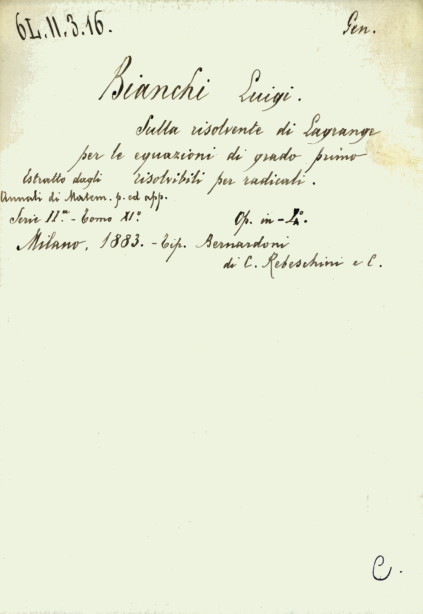 6L.11.3.16. Gen.
Bianchi Luigi.
Sulla risolvente di Lagrange
per le equazioni di grado primo
Estratto dagli risolvibili per radicali.
Annali di Matem. p. ed app.
Serie IIa - Tomo XIo. Op. in - 4o.
Milano, 1883. - Tip. Bernardoni
di C. Rebeschini e C.
C.